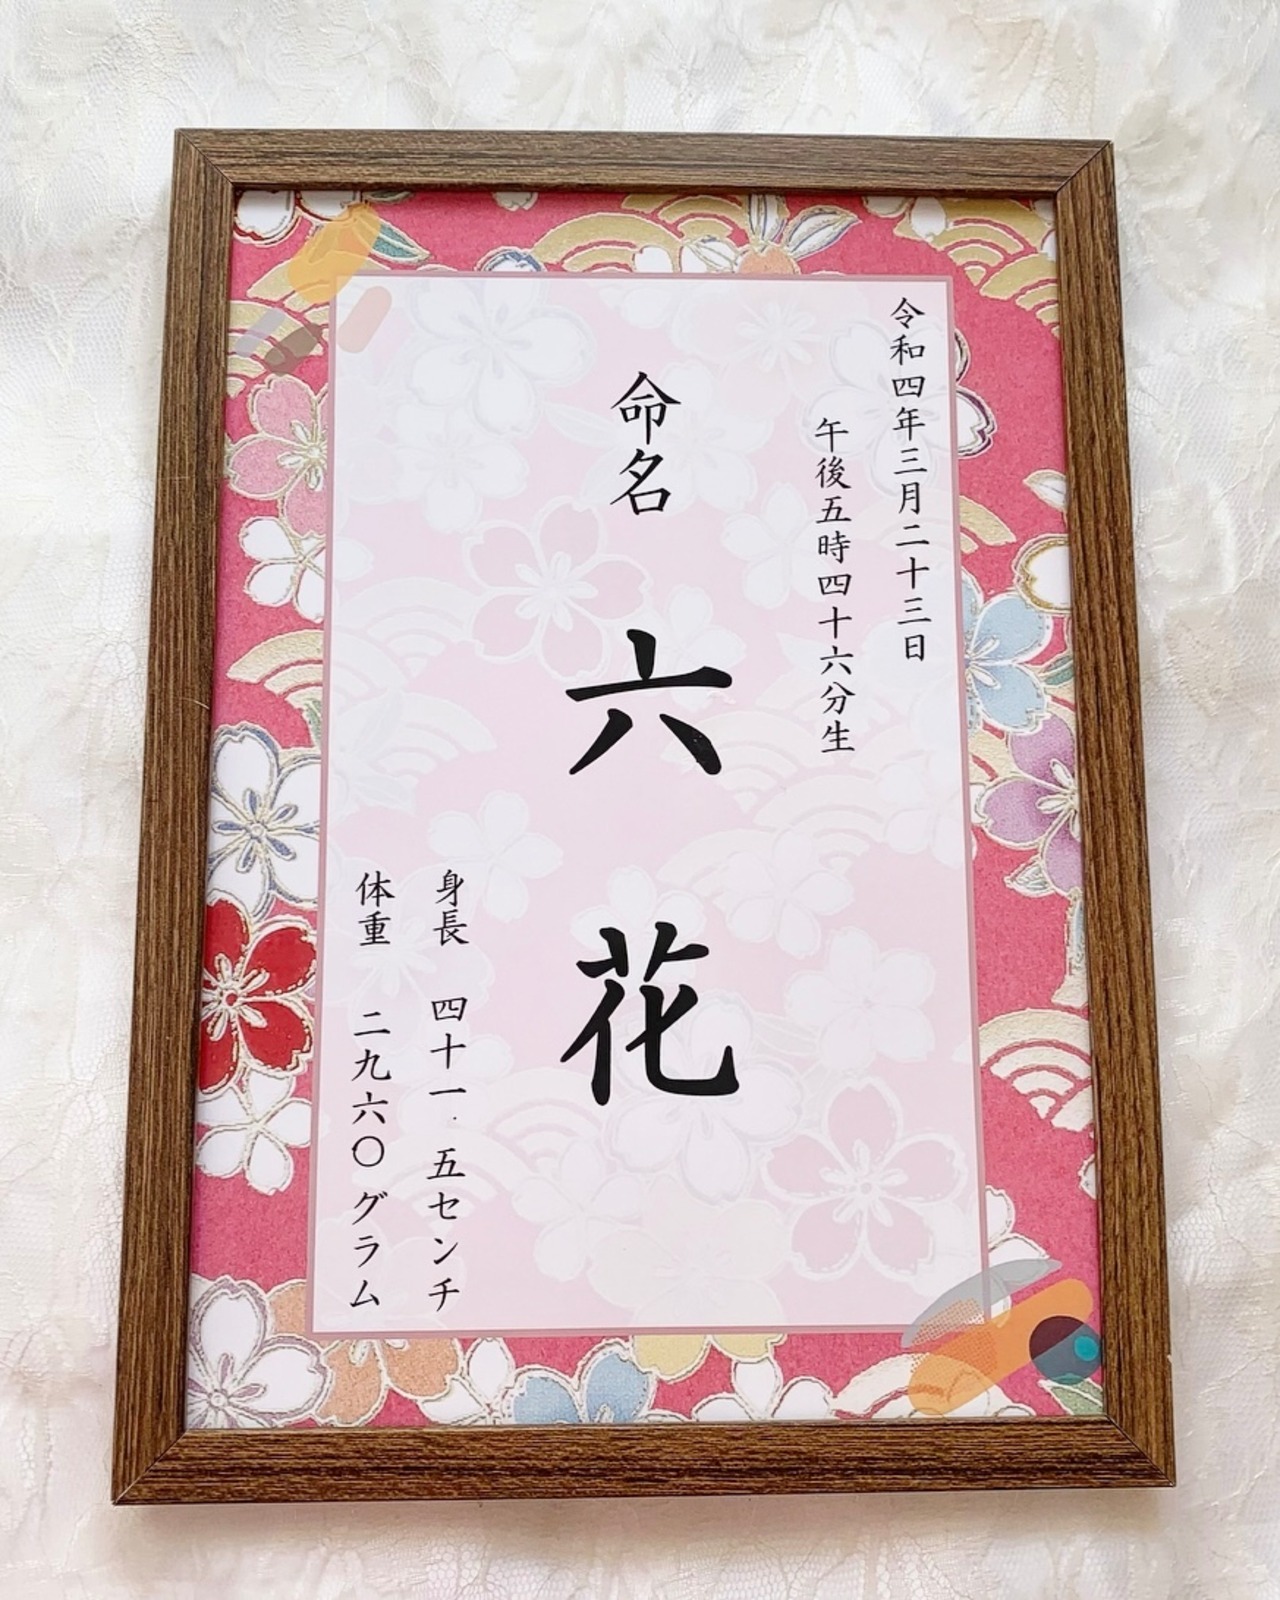 令和四年三月二十三日
午後五時四十六分生
命名
六花
身長 四十一.五センチ
体重 二九六〇グラム